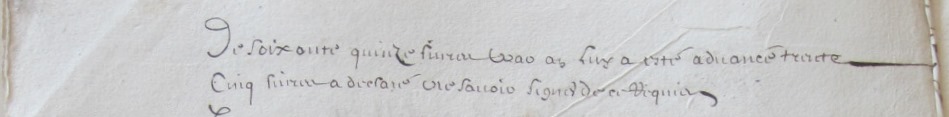 De soixante quinze livres a luy a esté advancé trente
Cinq livres a declaré ne savoir signer de ce requis